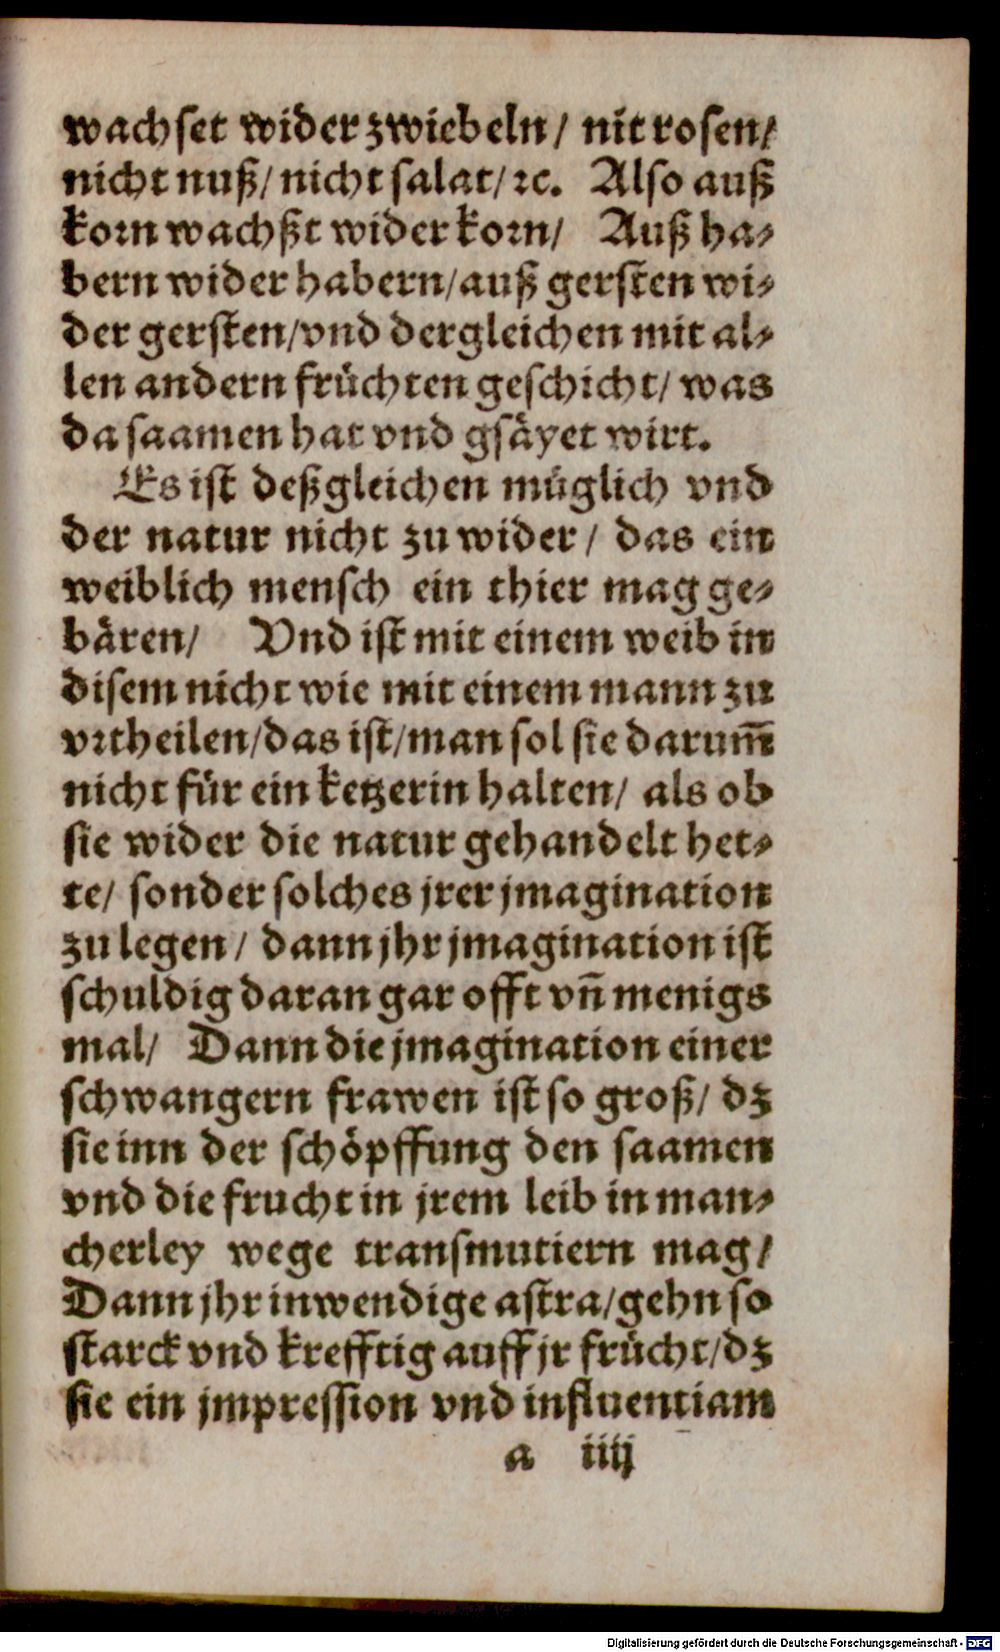 wachset wider zwiebeln/ nit rosen/
nicht nuß/ nicht salat/ ꝛc. Also auß
korn wachßt wider korn/ Auß ha⸗
bern wider habern/ auß gersten wi⸗
der gersten/ vnd dergleichen mit al⸗
len andern früchten geschicht/ was
da saamen hat vnd gsäyet wirt.
Es ist deßgleichen müglich vnd
der natur nicht zu wider/ das ein
weiblich mensch ein thier mag ge⸗
bären/ Vnd ist mit einem weib in
disem nicht wie mit einem mann zu
vrtheilen/ das ist/ man sol sie darum̄
nicht für ein ketzerin halten/ als ob
sie wider die natur gehandelt het⸗
te/ sonder solches jrer jmagination
zu legen/ dann jhr jmagination ist
schuldig daran gar offt vn̄ menigs
mal/ Dann die jmagination einer
schwangern frawen ist so groß/ dz
sie inn der schöpffung den saamen
vnd die frucht in jrem leib in man⸗
cherley wege transmutiern mag/
Dann jhr inwendige astra/ gehn so
starck vnd krefftig auff jr frücht/ dz
sie ein jmpression vnd influentiam
a iiij
Digitalisierung gefördert durch die Deutsche Forschungsgemeinschaft - DFG